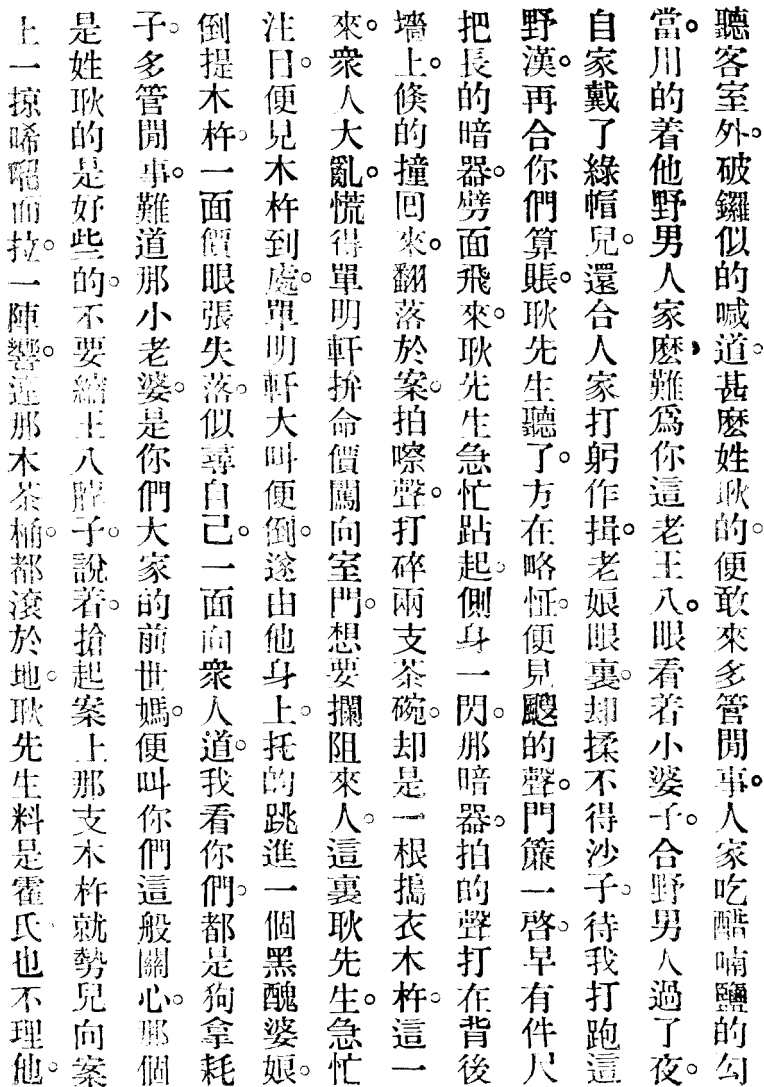 聽客室外。破鑼似的喊道。甚麼姓耿的。便敢來多管閒事。人家吃醋喃鹽的勾
當。川的着他野男人家麽。難爲你這老王八。眼看着小婆子。合野男人過了夜。
自家戴了綠帽兒。還合人家打躬作揖。老娘眼裏。却揉不得沙子。待我打跑這
野漢。再合你們算賬。耿先生聽了。方在略怔。便見颼的聲。門簾一啓。早有件尺
把長的暗器。劈面飛來。耿先生急忙跕起。側身一閃。那暗器。拍的聲打在背後
墻上。倐的撞回來。翻落於案。拍嚓聲。打碎兩支茶碗。却是一根搗衣木杵。這一
來。衆人大亂。慌得單明軒拚命價闖向室門。想要攔阻來人。這裏耿先生。急忙
注目。便見木杵到處。單明軒大叫便倒。遂由他身上。托的跳進一個黑醜婆娘。
倒提木杵。一面價眼張失落。似尋自己。一面向衆人道。我看你們。都是狗拿耗
子。多管閒事。難道那小老婆。是你們大家的前世媽。便叫你們這般關心。那個
是姓耿的。是好些的。不要給王八腔子。說着。搶起案上那支木杵。就勢兒向案
上一掠。唏𠺕面拉。一陣響。連那木茶桶。都滾於地。耿先生料是霍氏。也不理他。